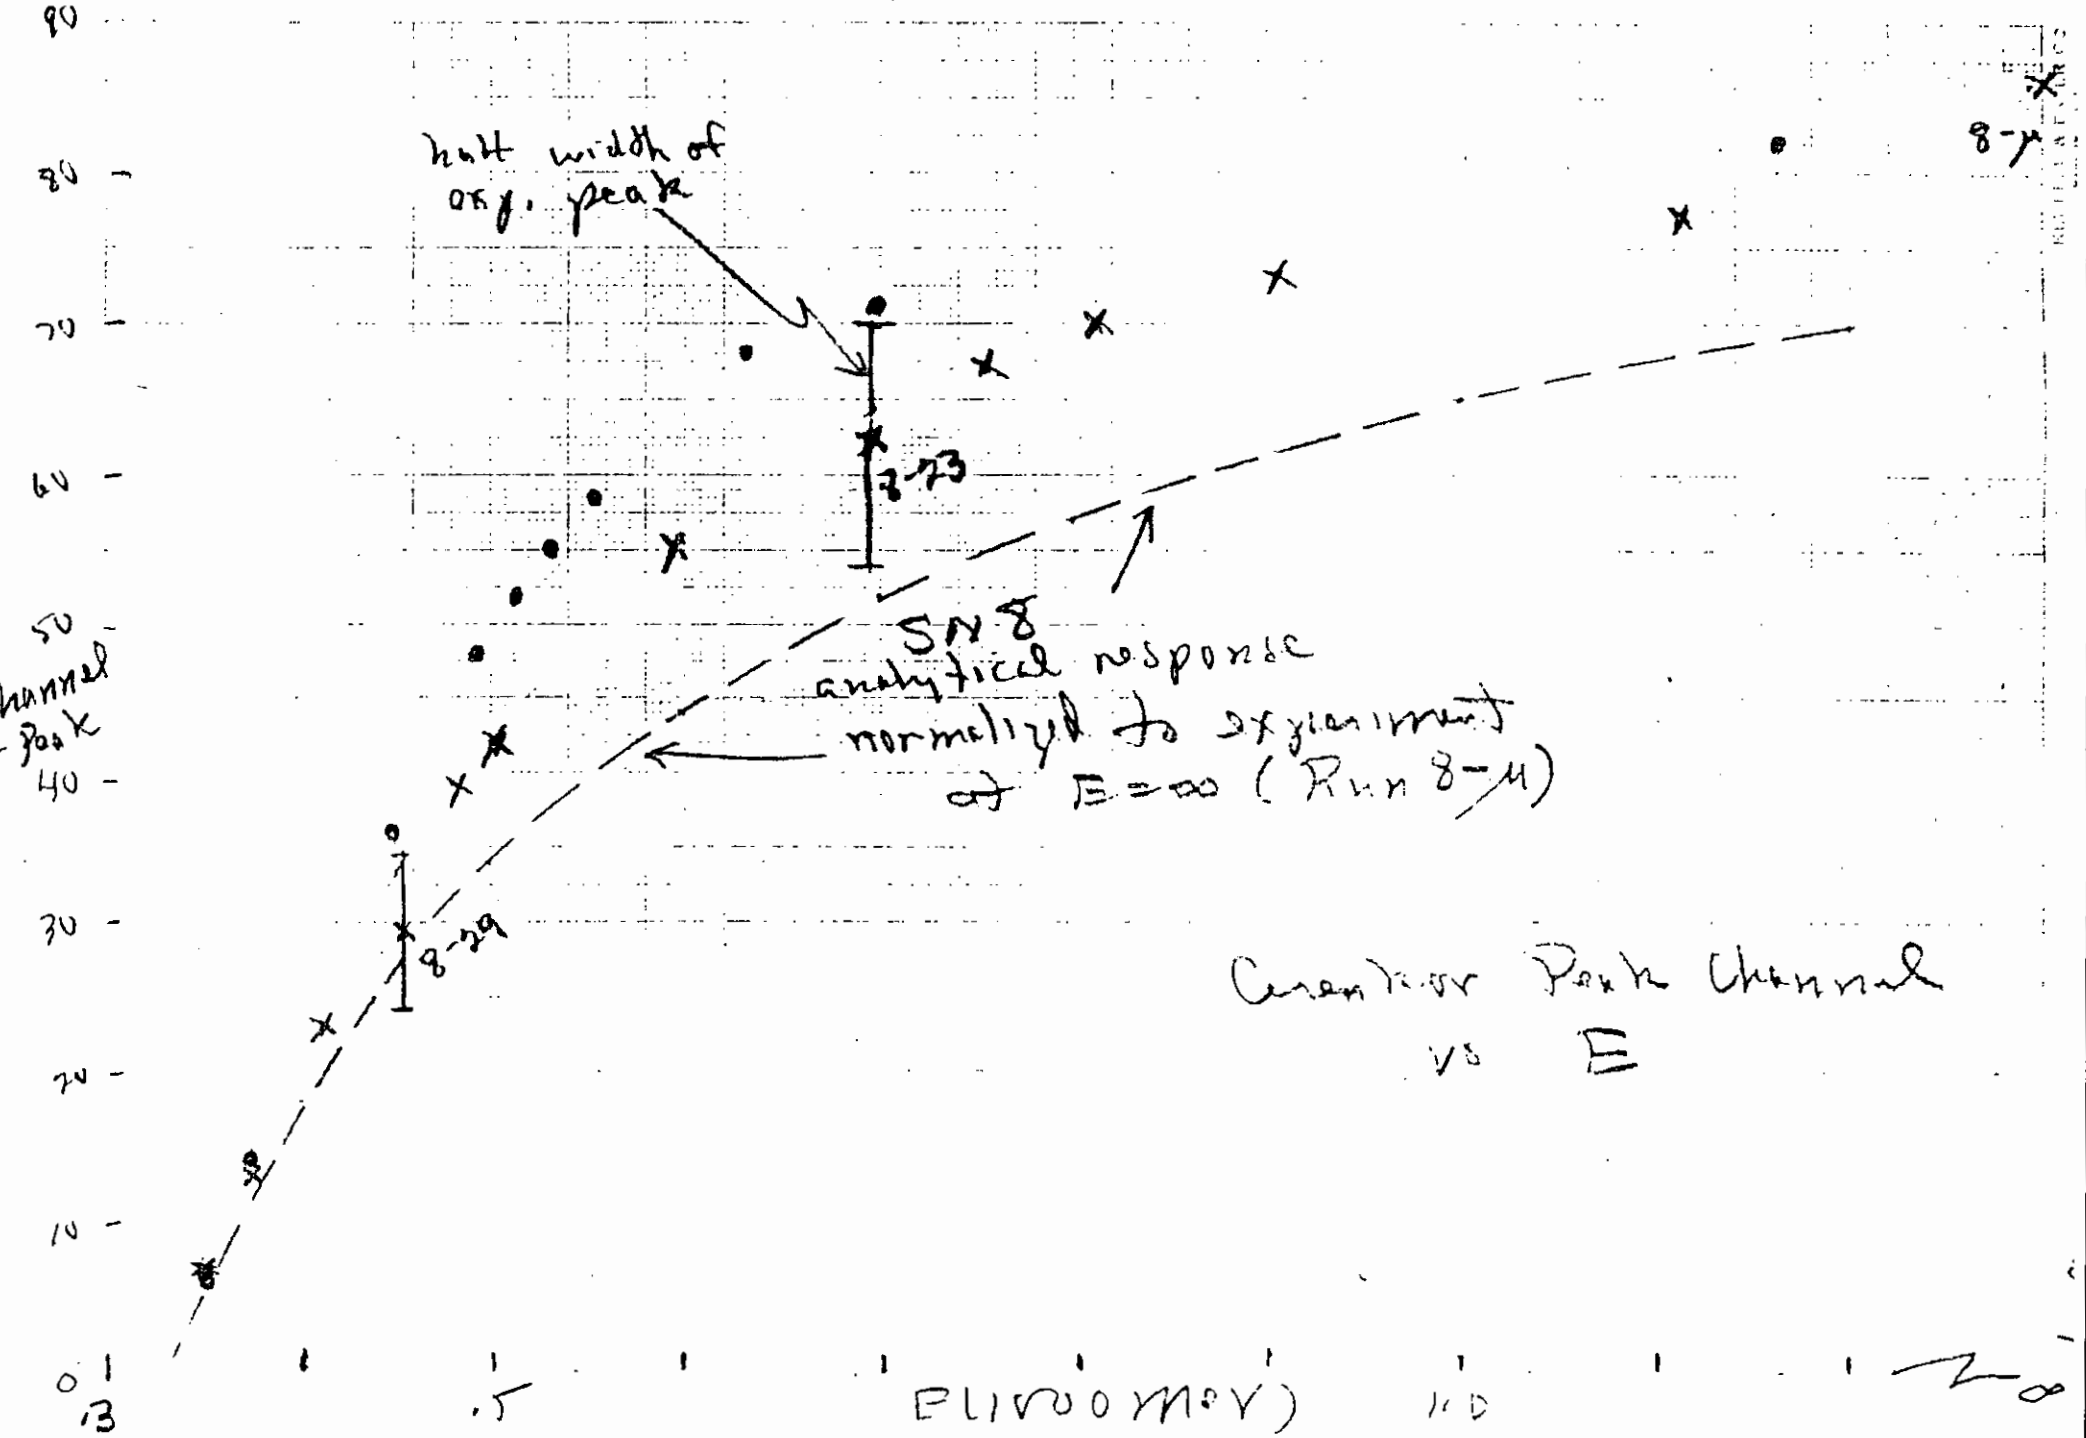 90
80
70
60
50
40
30
20
10
0
half width of
oxy. peak
8-μ
8-23
SN 8
analytical response
normalized to experiment
at E=∞ (Run 8-μ)
hannel
Peak
8-29
Cerenkov Peak Channel
vs E
.3
.5
E(1000 MeV)
1.0
∞